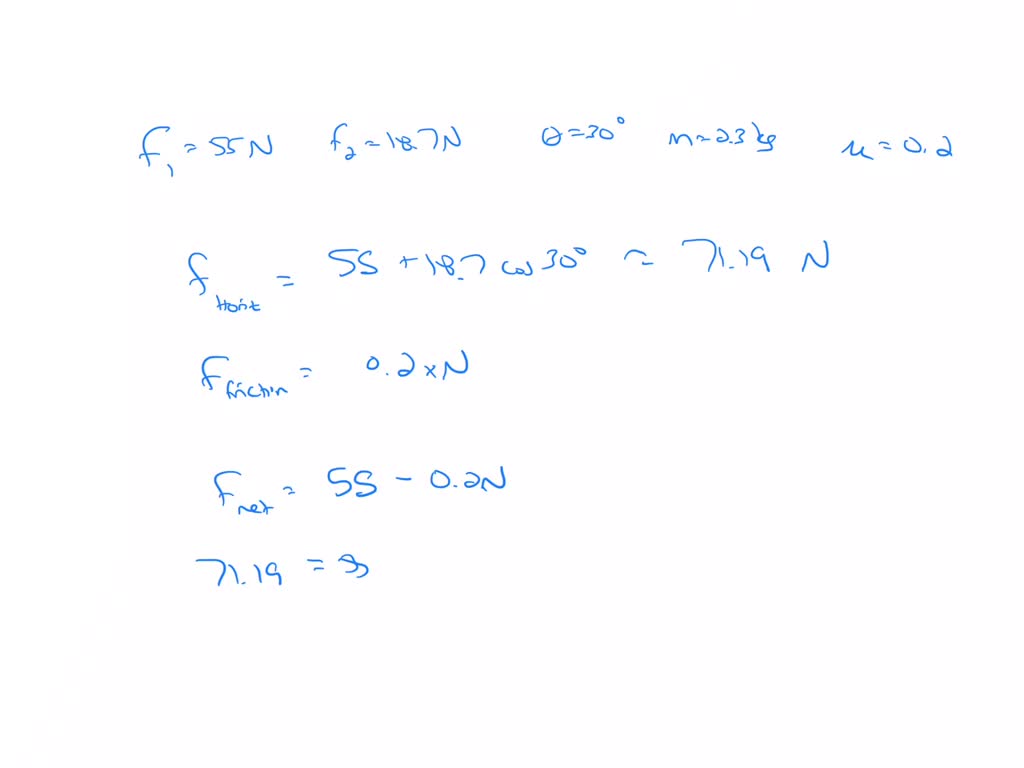 f₁ = 55 N f₂ = 18.7 N θ = 30° m = 2.3 kg μ = 0.2
f Horiz = 55 + 18.7 cos 30° ≈ 71.19 N
f friction = 0.2 × N
f net = 55 - 0.2N
71.19 =